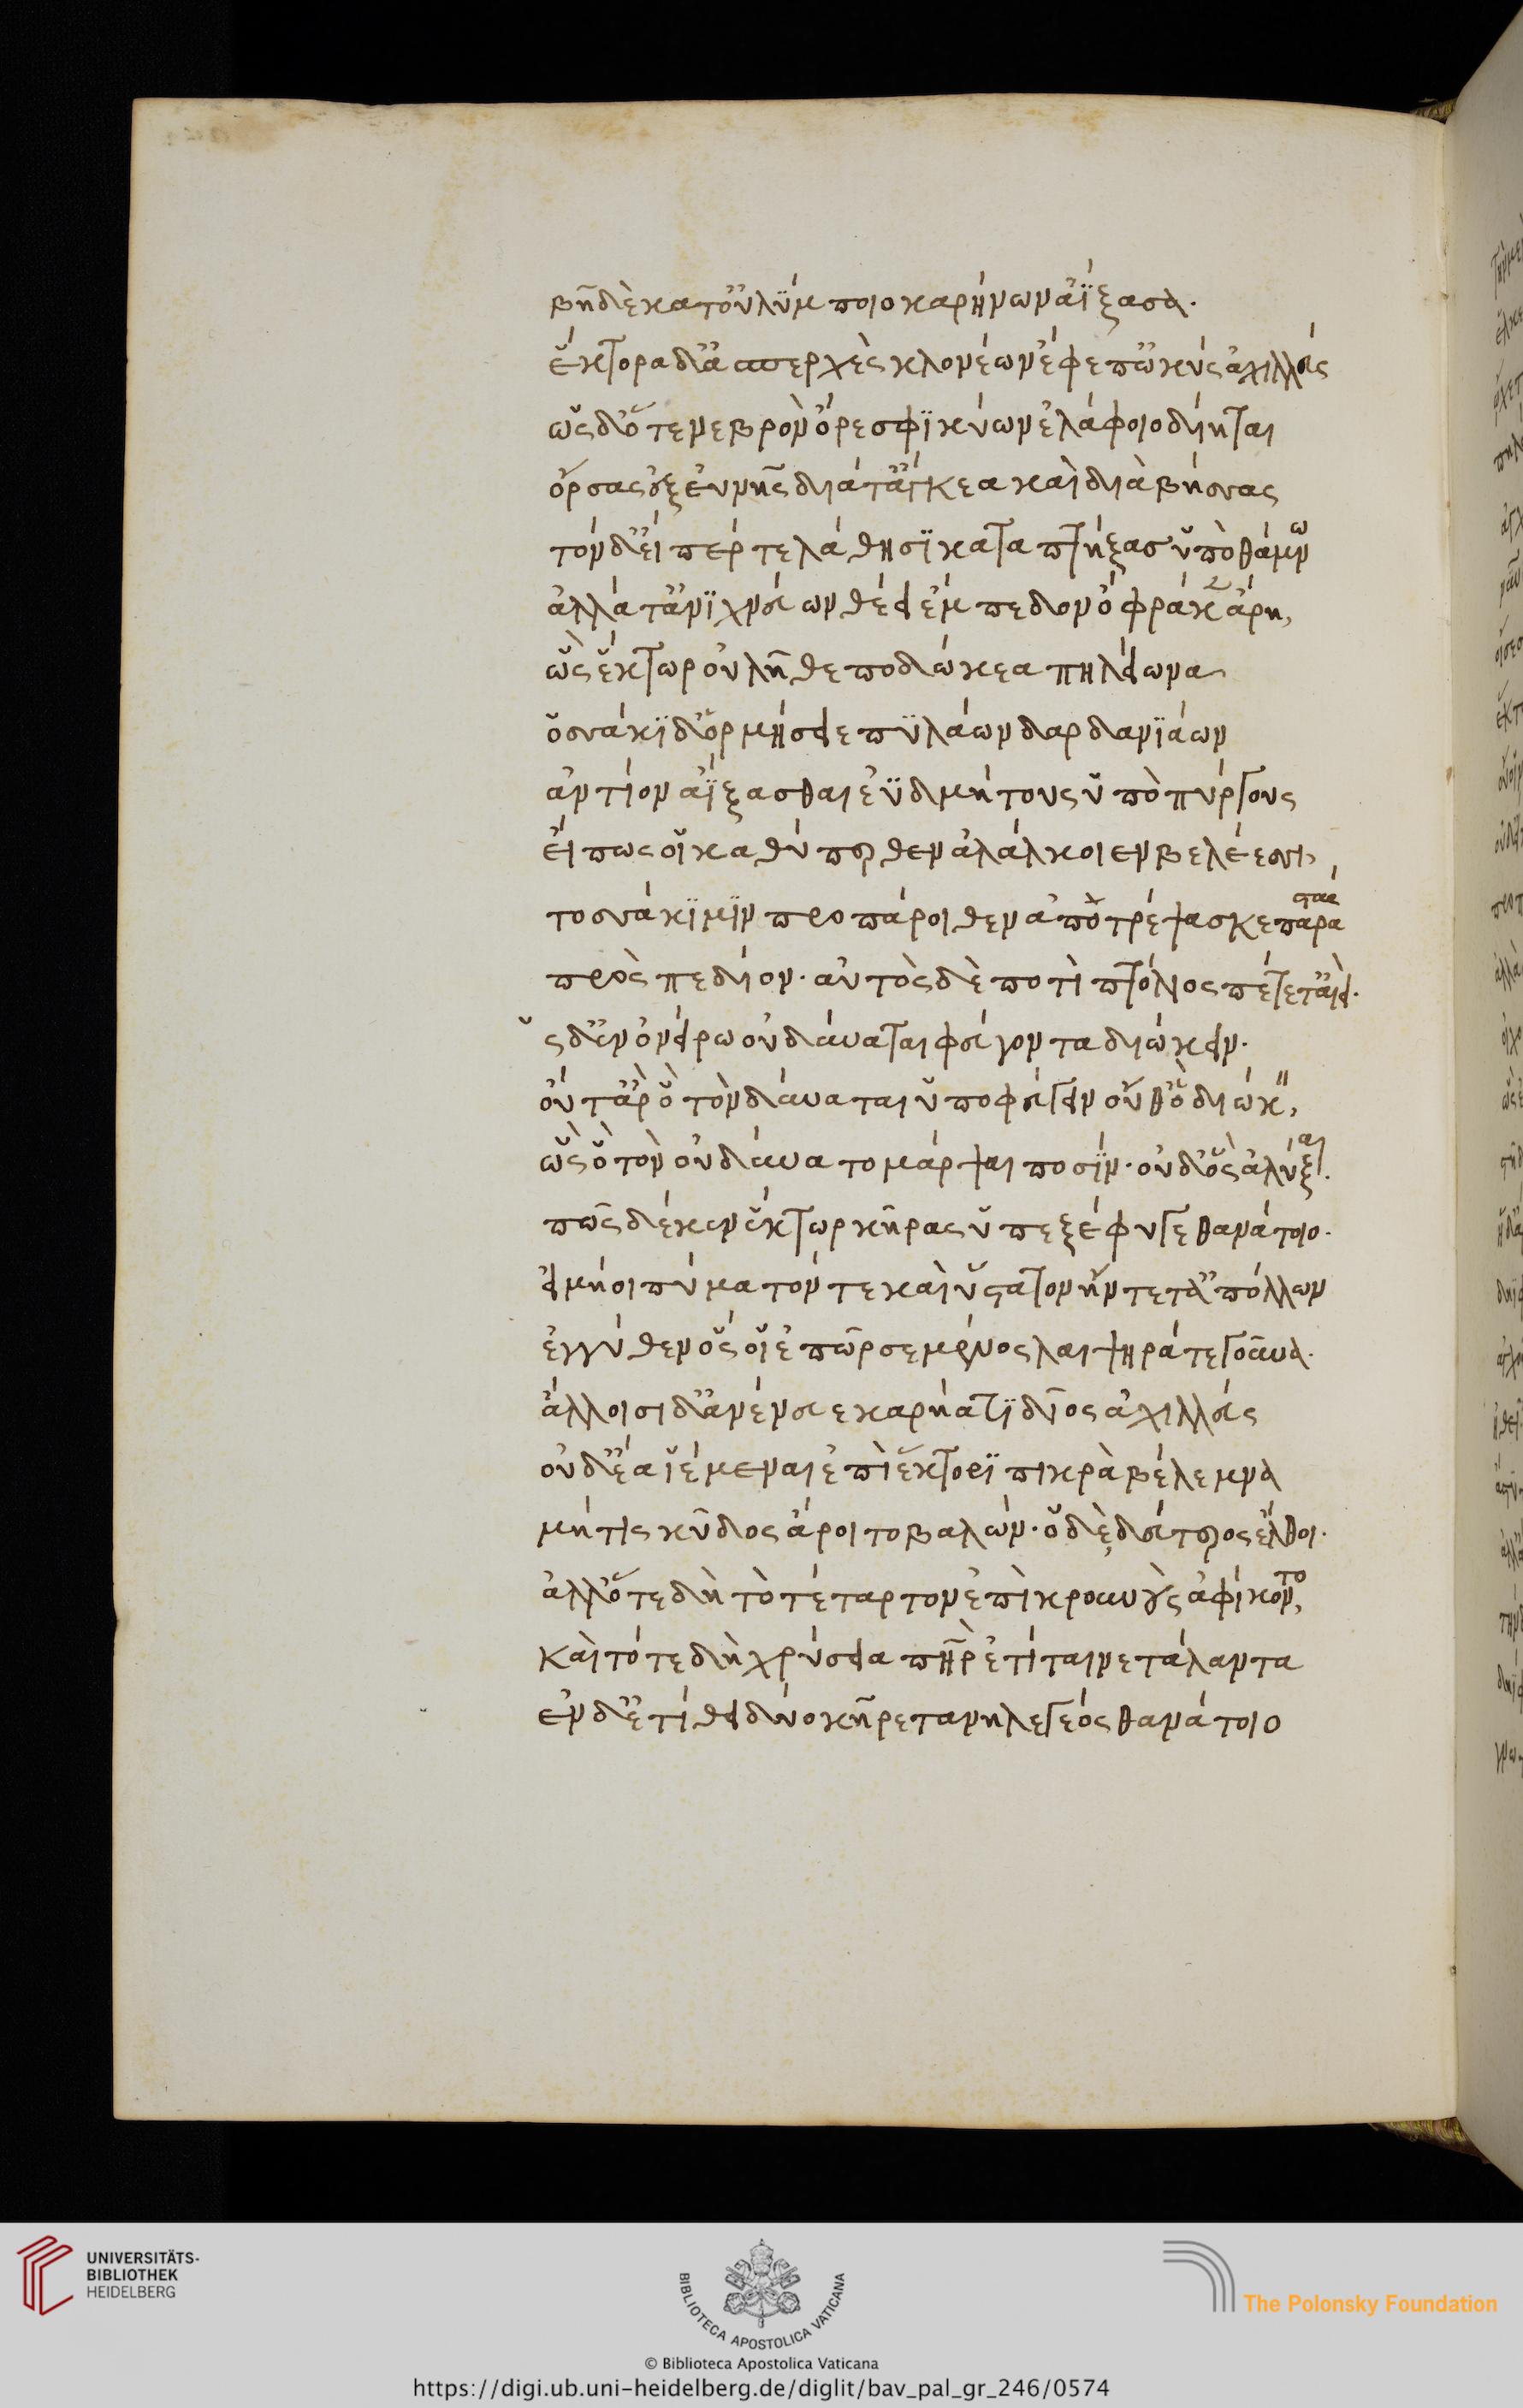 βῆ δὲ κατ' οὐλύμποιο καρήνων ἀΐξασα.
ἕκτορα δ' ἀσπερχὲς κλονέων ἔφεπ' ὠκὺς ἀχιλλεύς
ὡς δ' ὅτε νεβρὸν ὄρεσφι κύων ἐλάφοιο δίηται
ὄρσας ἐξ εὐνῆς διά τ' ἄγκεα καὶ διὰ βήσσας
τὸν δ' εἴπέρ τε λάθησι καταπτήξας ὑπὸ θάμνω
ἀλλά τ' ἀνιχνεύων θέει ἔμπεδον ὄφρά κεν εὕρη,
ὣς ἕκτωρ οὐ λῆθε ποδώκεα πηλείωνα
ὁσσάκι δ' ὁρμήσειε πυλάων δαρδανιάων
ἀντίον ἀΐξασθαι ἐϋδμήτους ὑπὸ πύργους
εἴπως οἷ καθύπερθεν ἀλάλκοιεν βελέεσσι,
τοσσάκι μιν προπάροιθεν ἀποτρέψασκε παρα στάς
πρὸς πεδίον. αὐτὸς δὲ ποτὶ πτόλιος πέτετ' αἰεί.
ς δ' ἐν ὀνείρω οὐ δύναται φεύγοντα διώκειν.
οὔτ' ἂρ ὃ τὸν δύναται ὑποφεύγειν οὔθ' ὃ διώκειν,
ὣς ὃ τὸν οὐ δύνατο μάρψαι ποσίν. οὐδ' ὃς ἀλύξαι.
πῶς δέ κεν ἕκτωρ κῆρας ὑπεξέφυγε θανάτοιο.
εἰ μή οἱ πύματόν τε καὶ ὕστατον ἤντετ' ἀπόλλων
ἐγγύθεν ὅς οἱ ἐπῶρσε μένος λαιψηρά τε γοῦνα.
ἄλλοισι δ' ἀνένευε καρήατι δῖος ἀχιλλεύς
οὐδ' ἔα ἱέμεναι ἐπὶ ἕκτορι πικρὰ βέλεμνα
μήτις κῦδος ἄροιτο βαλών. ὃ δὲ δεύτερος ἔλθοι.
ἀλλ' ὅτε δὴ τὸ τέταρτον ἐπὶ κρουνοὺς ἀφίκοντο,
καὶ τότε δὴ χρύσεια πατὴρ ἐτίταινε τάλαντα
ἐν δ' ἐτίθει δύο κῆρε τανηλεγέος θανάτοιο
UNIVERSITÄTS-
BIBLIOTHEK
HEIDELBERG
BIBLIOTECA APOSTOLICA VATICANA
The Polonsky Foundation
© Biblioteca Apostolica Vaticana
https://digi.ub.uni-heidelberg.de/diglit/bav_pal_gr_246/0574